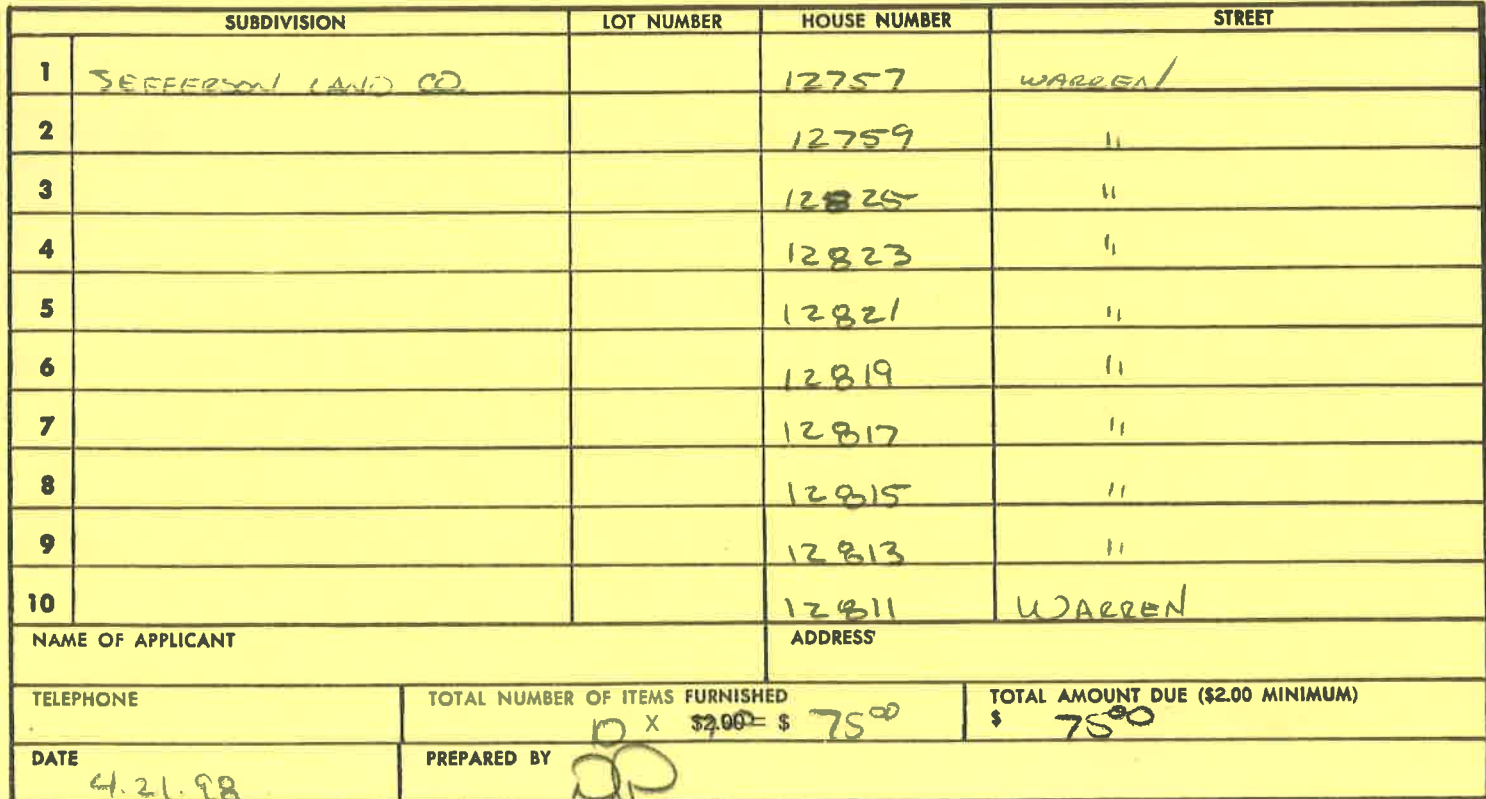 SUBDIVISION LOT NUMBER HOUSE NUMBER STREET
1 JEFFERSON LAND CO. 12757 WARREN
2 12759 "
3 12825 "
4 12823 "
5 12821 "
6 12819 "
7 12817 "
8 12815 "
9 12813 "
10 12811 WARREN
NAME OF APPLICANT ADDRESS
TELEPHONE TOTAL NUMBER OF ITEMS FURNISHED TOTAL AMOUNT DUE ($2.00 MINIMUM)
10 X $2.00 = $ 7500 $ 7500
DATE PREPARED BY
4.21.98 DP